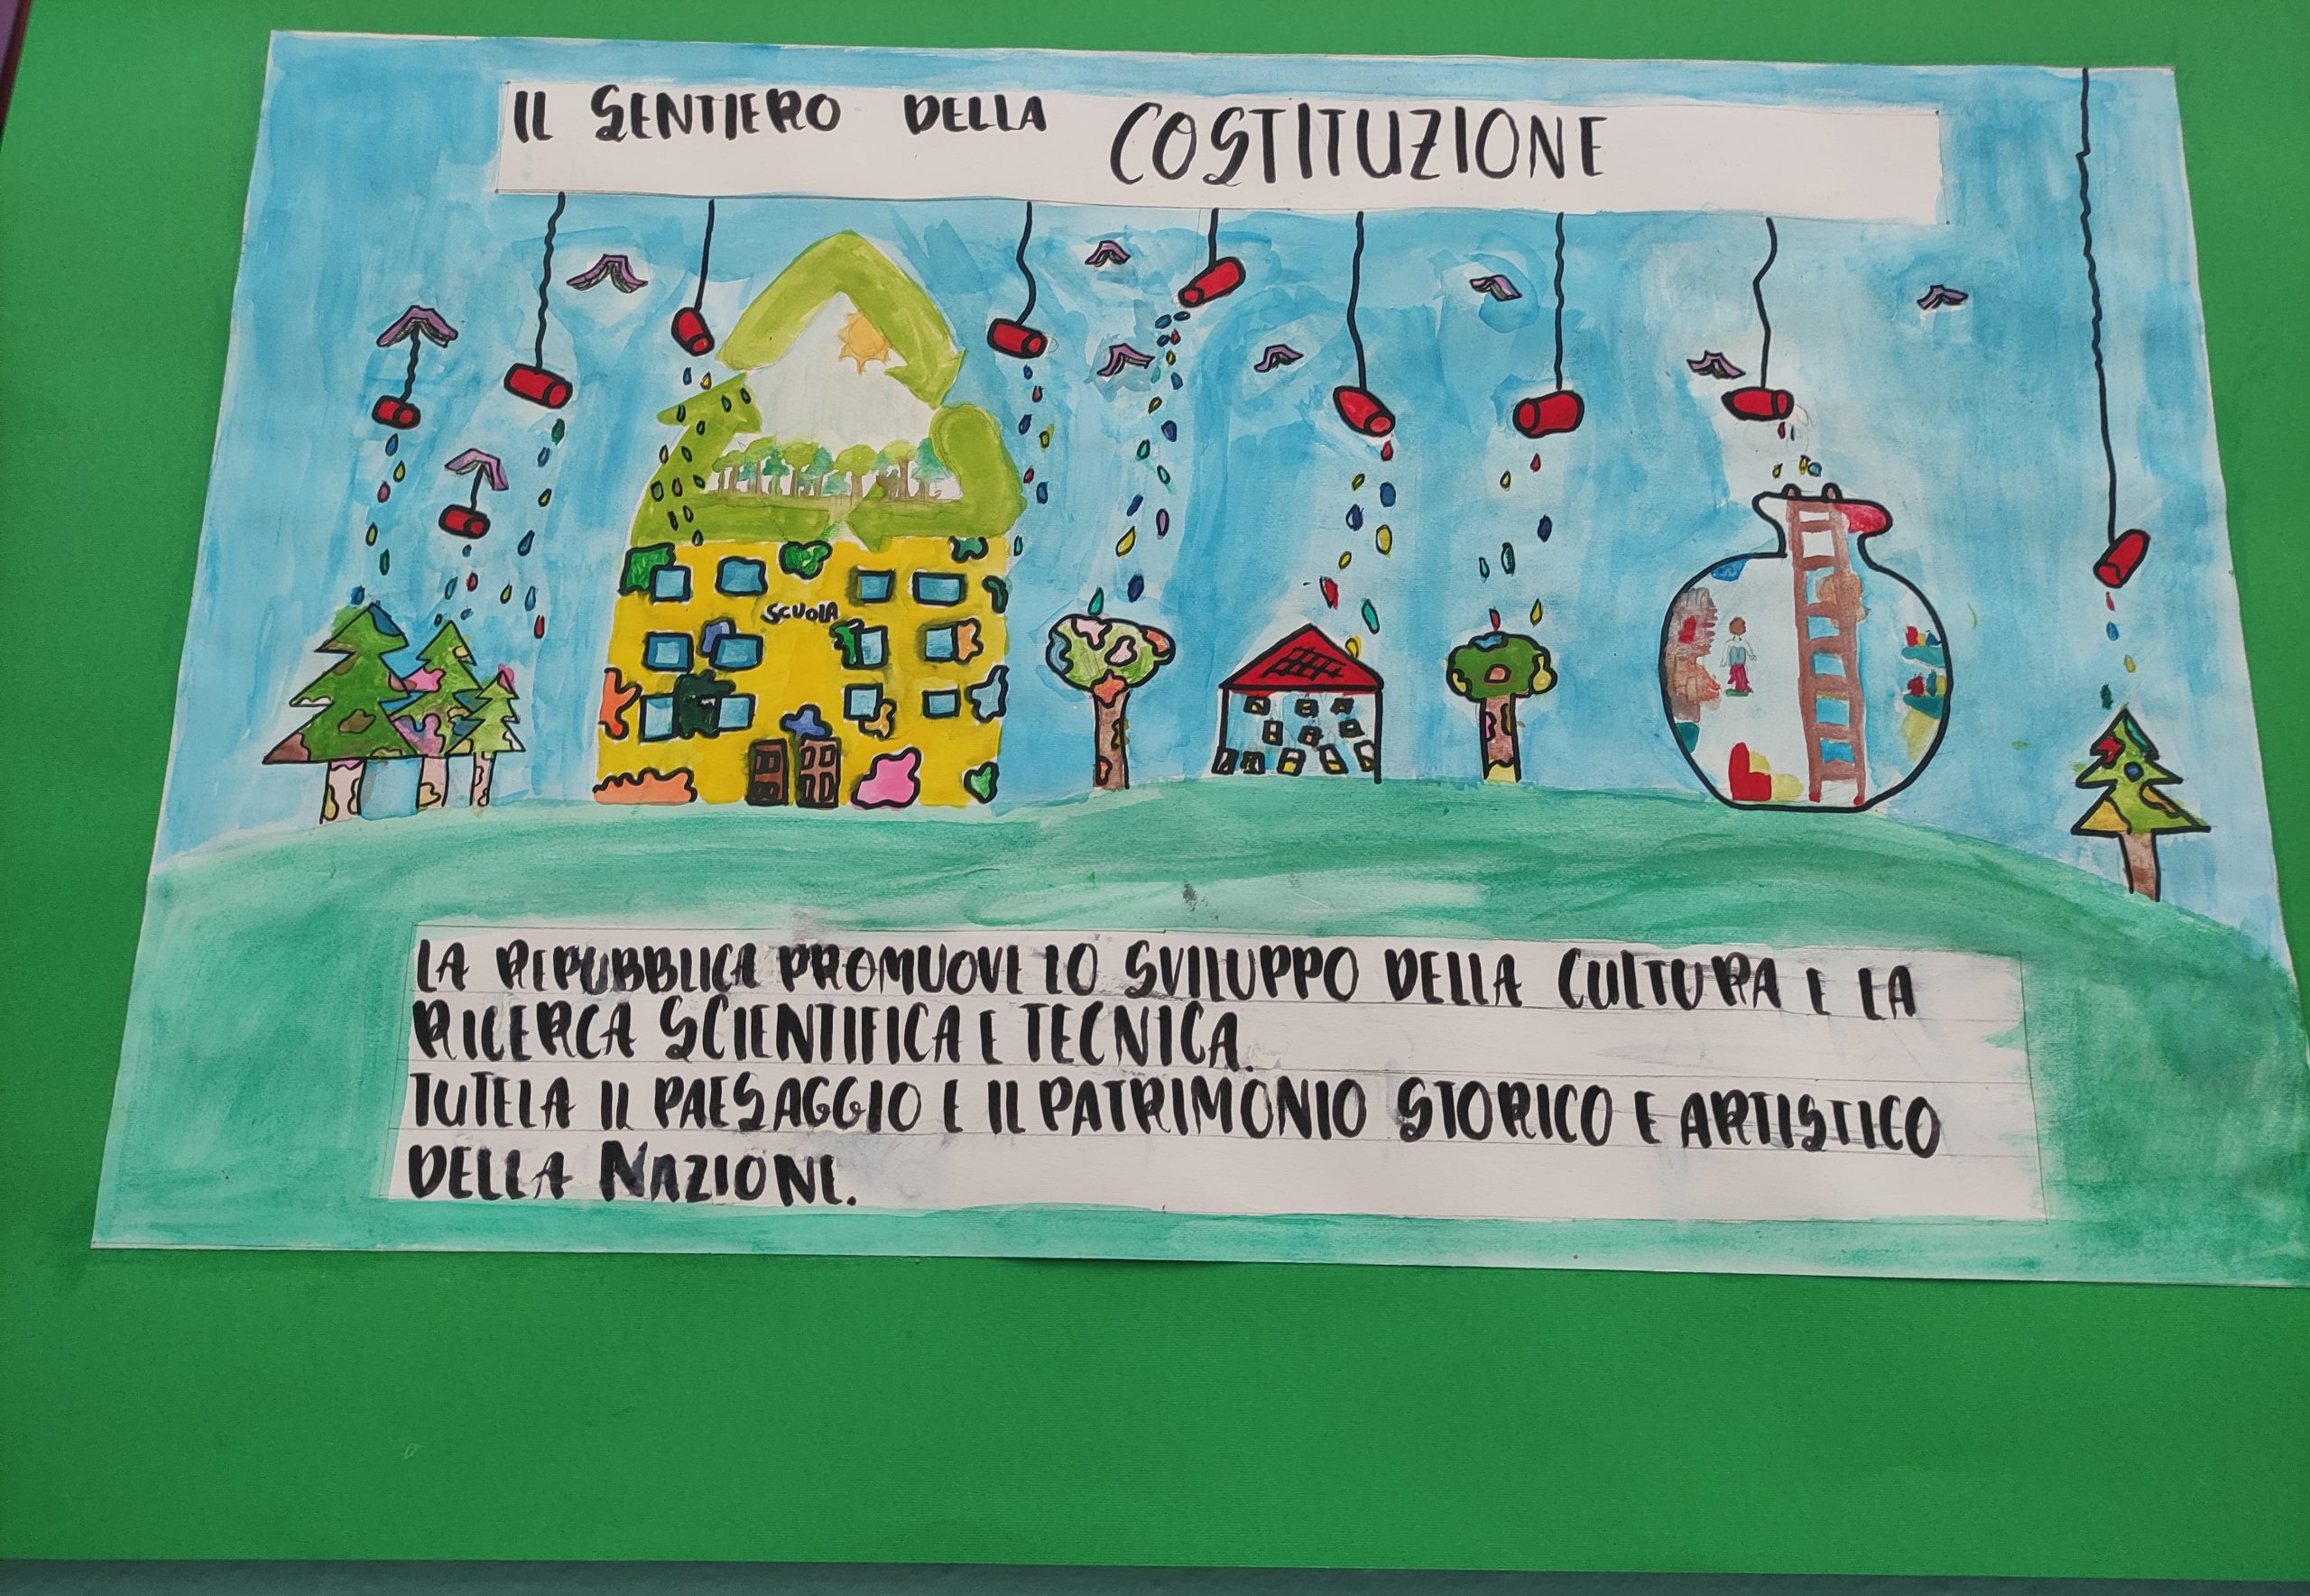 IL SENTIERO DELLA COSTITUZIONE
SCUOLA
LA REPUBBLICA PROMUOVE LO SVILUPPO DELLA CULTURA E LA
RICERCA SCIENTIFICA E TECNICA.
TUTELA IL PAESAGGIO E IL PATRIMONIO STORICO E ARTISTICO
DELLA NAZIONE.